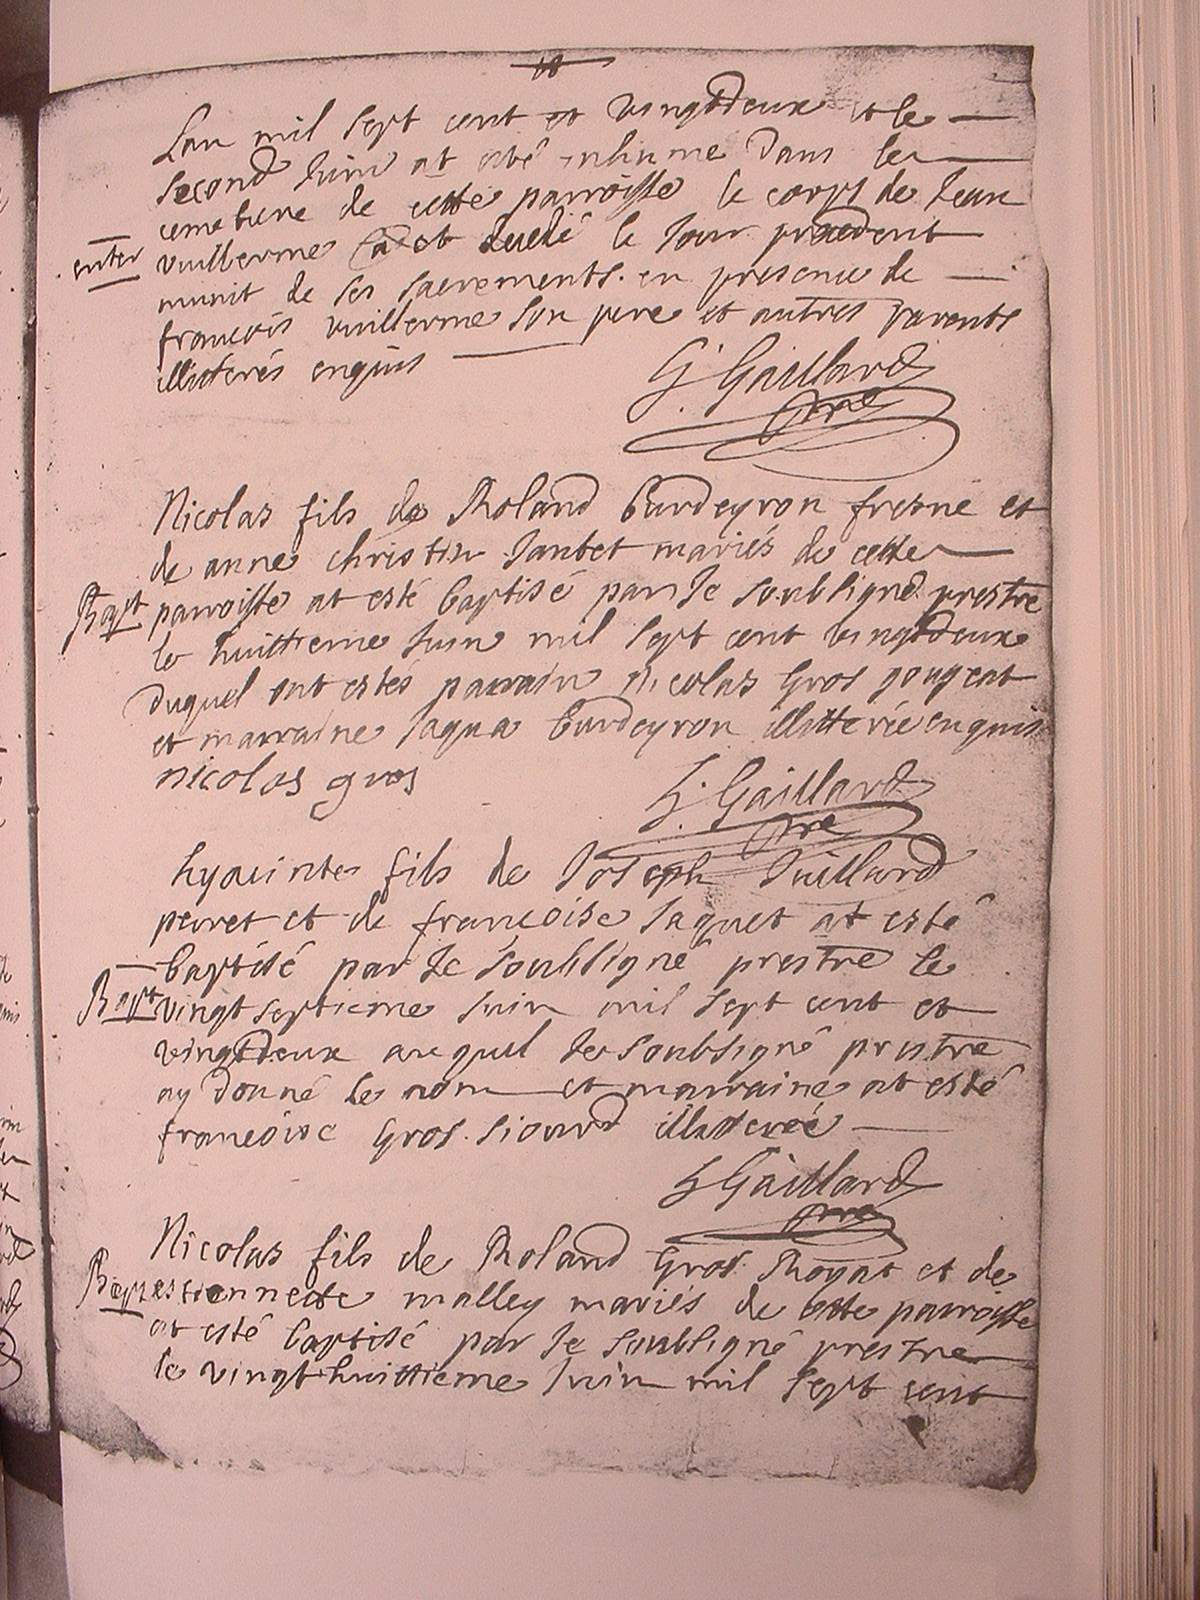 Lan mil sept cent et vingtdeux et le
second Juin at esté inhumé dans le
cemetiere de cette parroisse le corps de Jean
enter
vuillerme et decedé le Jour precedent
munit de ses sacrements en presence de
françois vuillerme son pere et autres parents
illiterés enquis
G. Gaillard
pre
Nicolas fils de Roland Burdeyron fresne et
de anne christin Jantet mariés de cette
Bapt parroisse at esté baptisé par Je soubsigné prestre
le huittieme Juin mil sept cent vingtdeux
duquel ont estés parrain nicolas Gros gougeat
et marraine Jaqua burdeyron illitterée enquis
nicolas gros
G. Gaillard
pre
hyacinte fils de Joseph Juillard
perret et de françoise Jaquet at esté
baptisé par Je soubsigné prestre le
Bapt vingt septieme Juin mil sept cent et
vingtdeux auquel Je soubsigné prestre
ay donné le nom et marraine at esté
françoise Gros siouvd illiterée
G Gaillard
pre
Nicolas fils de Roland Gros Royat et de
Bapt estiennette malley mariés de cette parroisse
at esté baptisé par Je soubsigné prestre
le vingthuittieme Juin mil sept cent